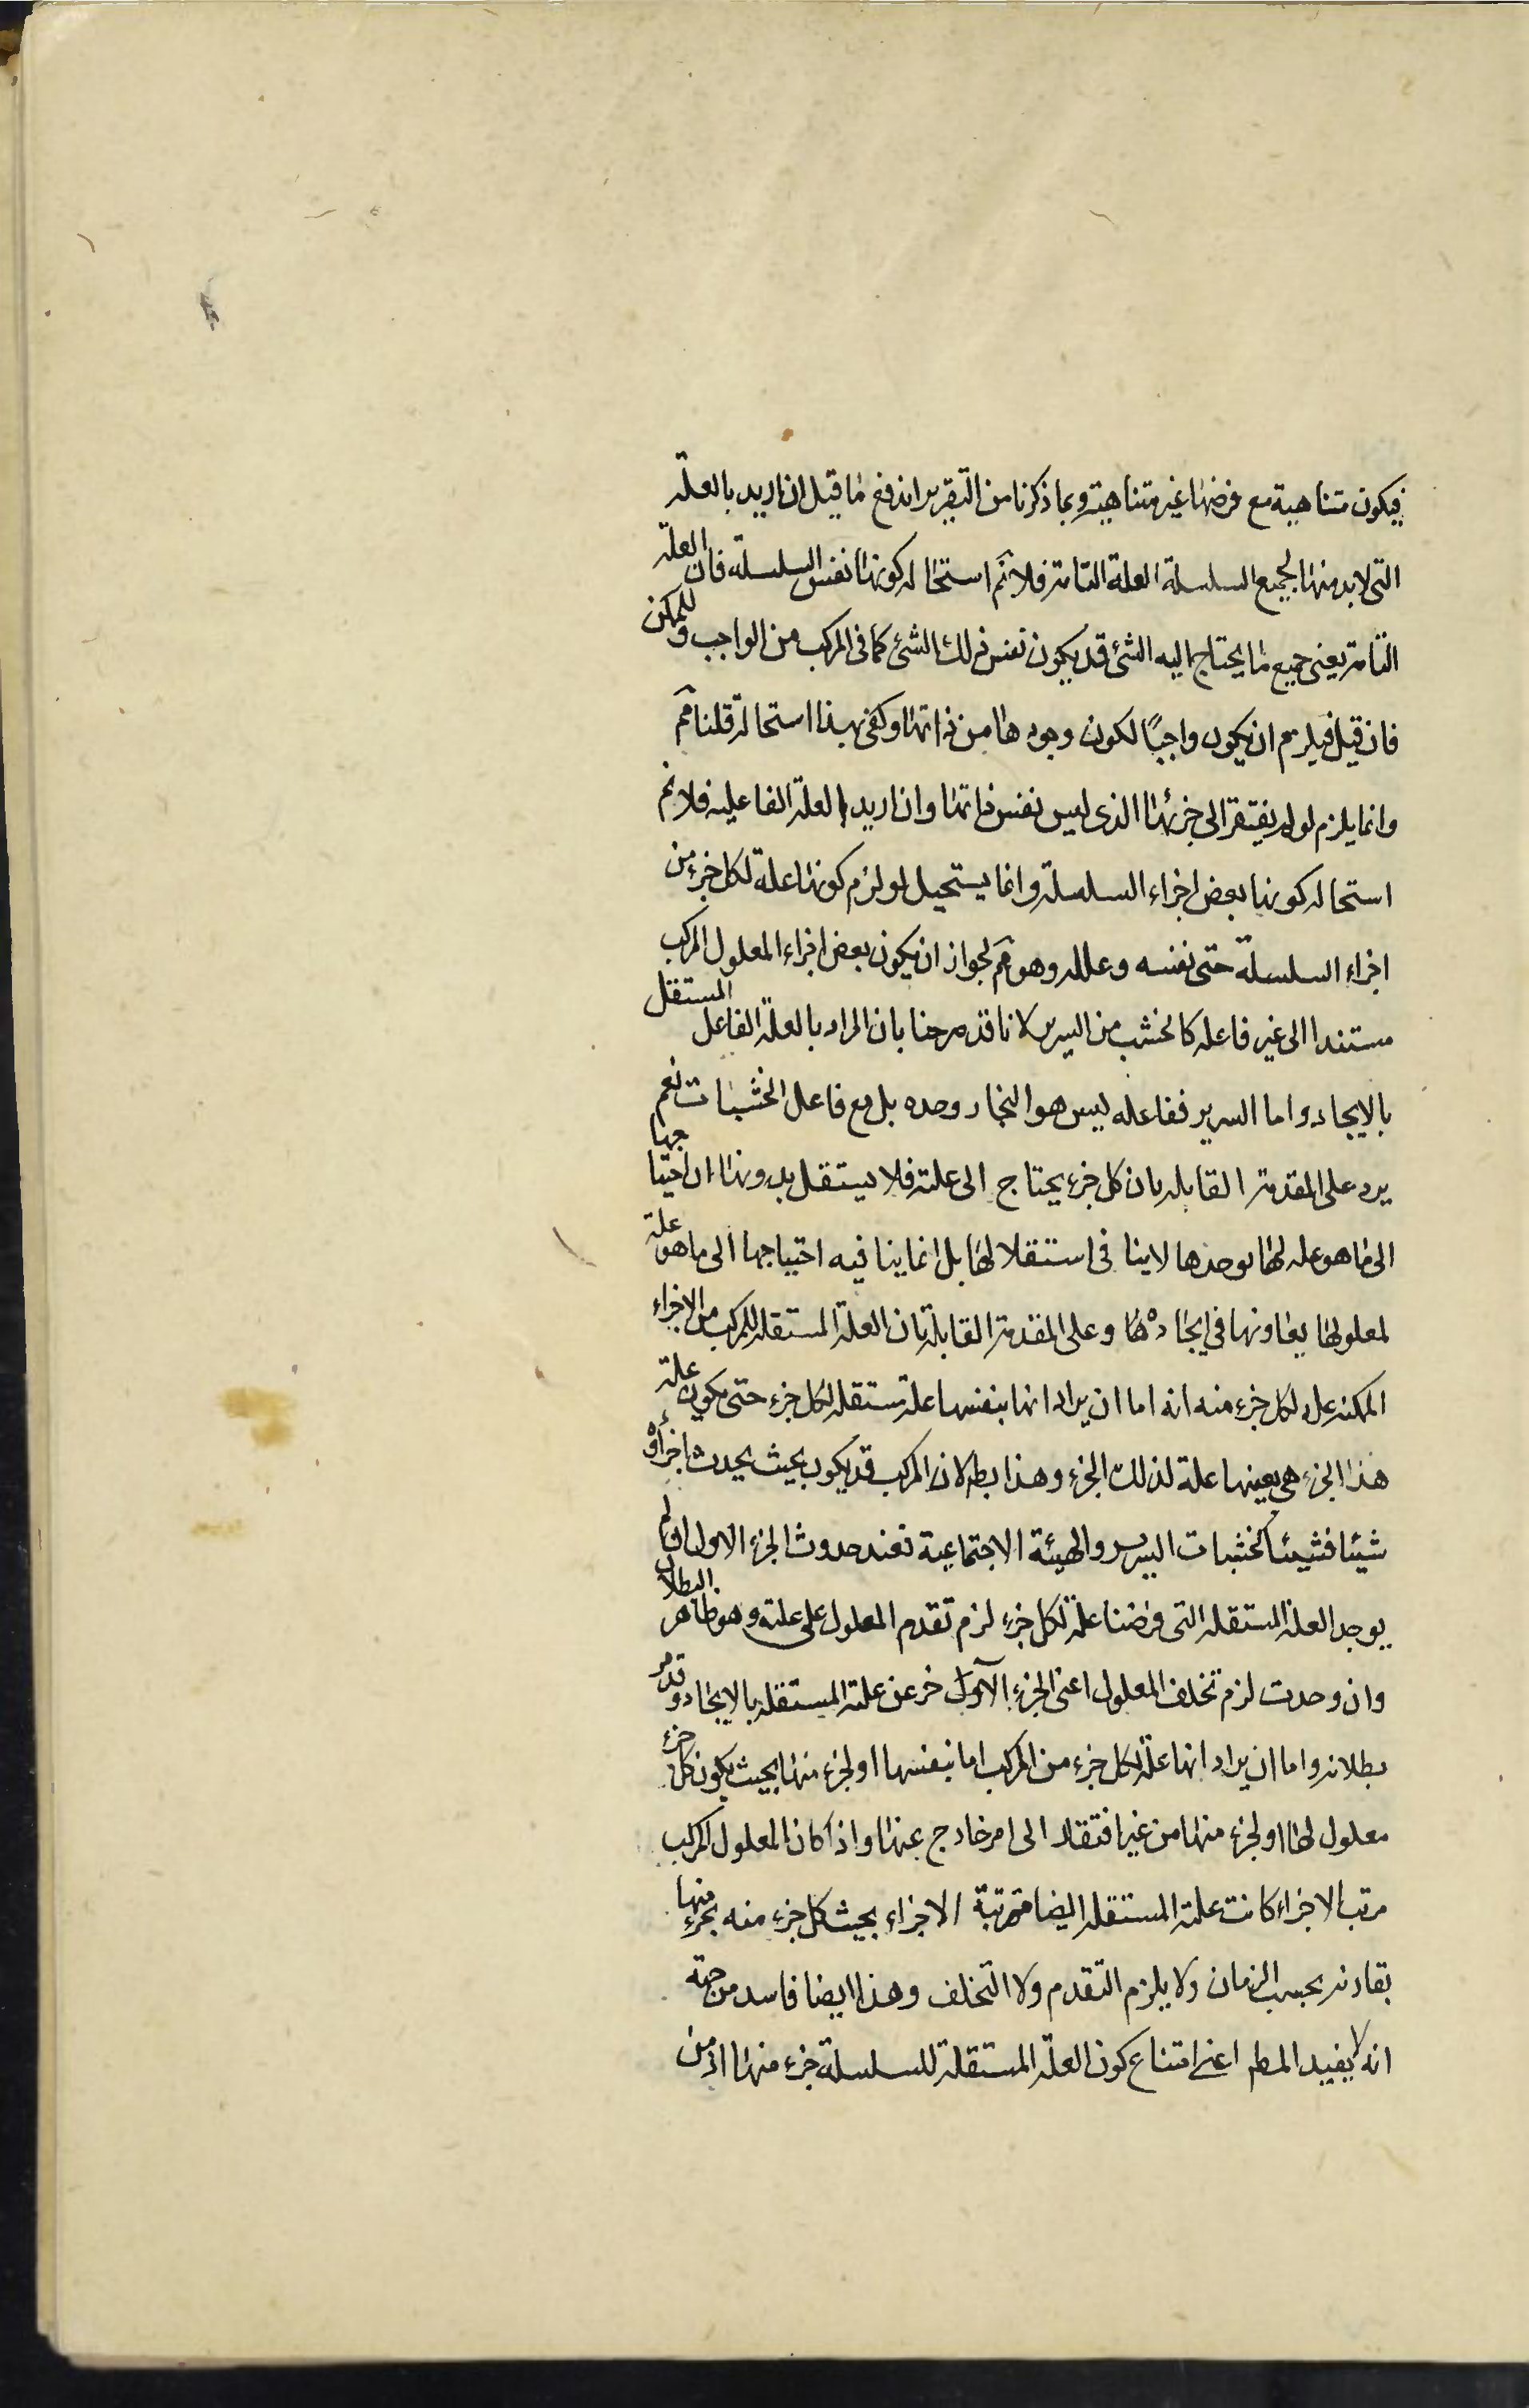 فيكون متناهية مع فرضها غير متناهية وبما ذكرنا من التقرير اندفع ما قيل ان اريد بالعلة
التى لا بد منها لجميع السلسلة العلة التامة فلا نم استحالة كونها نفس السلسلة فان العلة
التامة يعنى جميع ما يحتاج اليه الشئ قد يكون نفس ذلك الشئ كما فى المركب من الواجب والممكن
فان قيل فيلزم ان يكون واجبًا لكون وجودها من ذاتها وكفى بهذا استحالة قلنا مم
وانما يلزم لو لم يفتقر الى جزئها الذى ليس نفس ذاتها وان اريد العلة الفاعليه فلا نم
استحالة كونها بعض اجزاء السلسلة وانما يستحيل لو لزم كونها علة لكل جزء من
اجزاء السلسلة حتى نفسه وعلله وهو مم لجواز ان يكون بعض اجزاء المعلول المركب
مستندا الى غير فاعله كالخشب من السرير لانا قد صرحنا بان المراد بالعلة الفاعل المستقل
بالايجاد واما السرير ففاعله ليس هو النجار وحده بل مع فاعل الخشبات نعم
يرد على المقدمة القايلة بان كل جزء يحتاج الى علته فلا يستقل بدونها ان احتياجها
الى ما هو علة لها بوحدها لا ينا فى استقلالها بل انما ينافيه احتياجها الى ما هو علة
لمعلولها يعاونها فى ايجادها وعلى المقدمة القايلة بان العلة المستقلة للمركب من الاجزاء
الممكنة علة لكل جزء منه انه اما ان يراد انها بنفسها علة مستقلة لكل جزء حتى يكون علة
هذا الجزء هى بعينها علة لذلك الجزء وهذا بط لان المركب قد يكون بحيث يحدث اجزاؤه
شيئا فشيئا كخشبات السرير والهيئة الاجتماعية فعند حدوث الجزء الاول ان لم
يوجد العلة المستقلة التى فرضنا علة لكل جزء لزم تقدم المعلول على علته وهو ظاهر البطلان
وان وجدت لزم تخلف المعلول اعنى الجزء الآخر عن علته المستقلة بالايجاد وقد مر
بطلانه واما ان يراد انها علة لكل جزء من المركب اما بنفسها او لجزء منها بحيث يكون كل جزء
معلول لها او لجزء منها من غير افتقار الى امر خارج عنها واذا كان المعلول المركب
مرتب الاجزاء كانت علته المستقلة ايضا مترتبة الاجزاء بحيث كل جزء منه بجزء منها
يقارنه بحسب الزمان ولا يلزم التقدم ولا التخلف وهذا ايضا فاسد من جهة
انه لا يفيد المط اعنى امتناع كون العلة المستقلة للسلسلة جزء منها اذ من